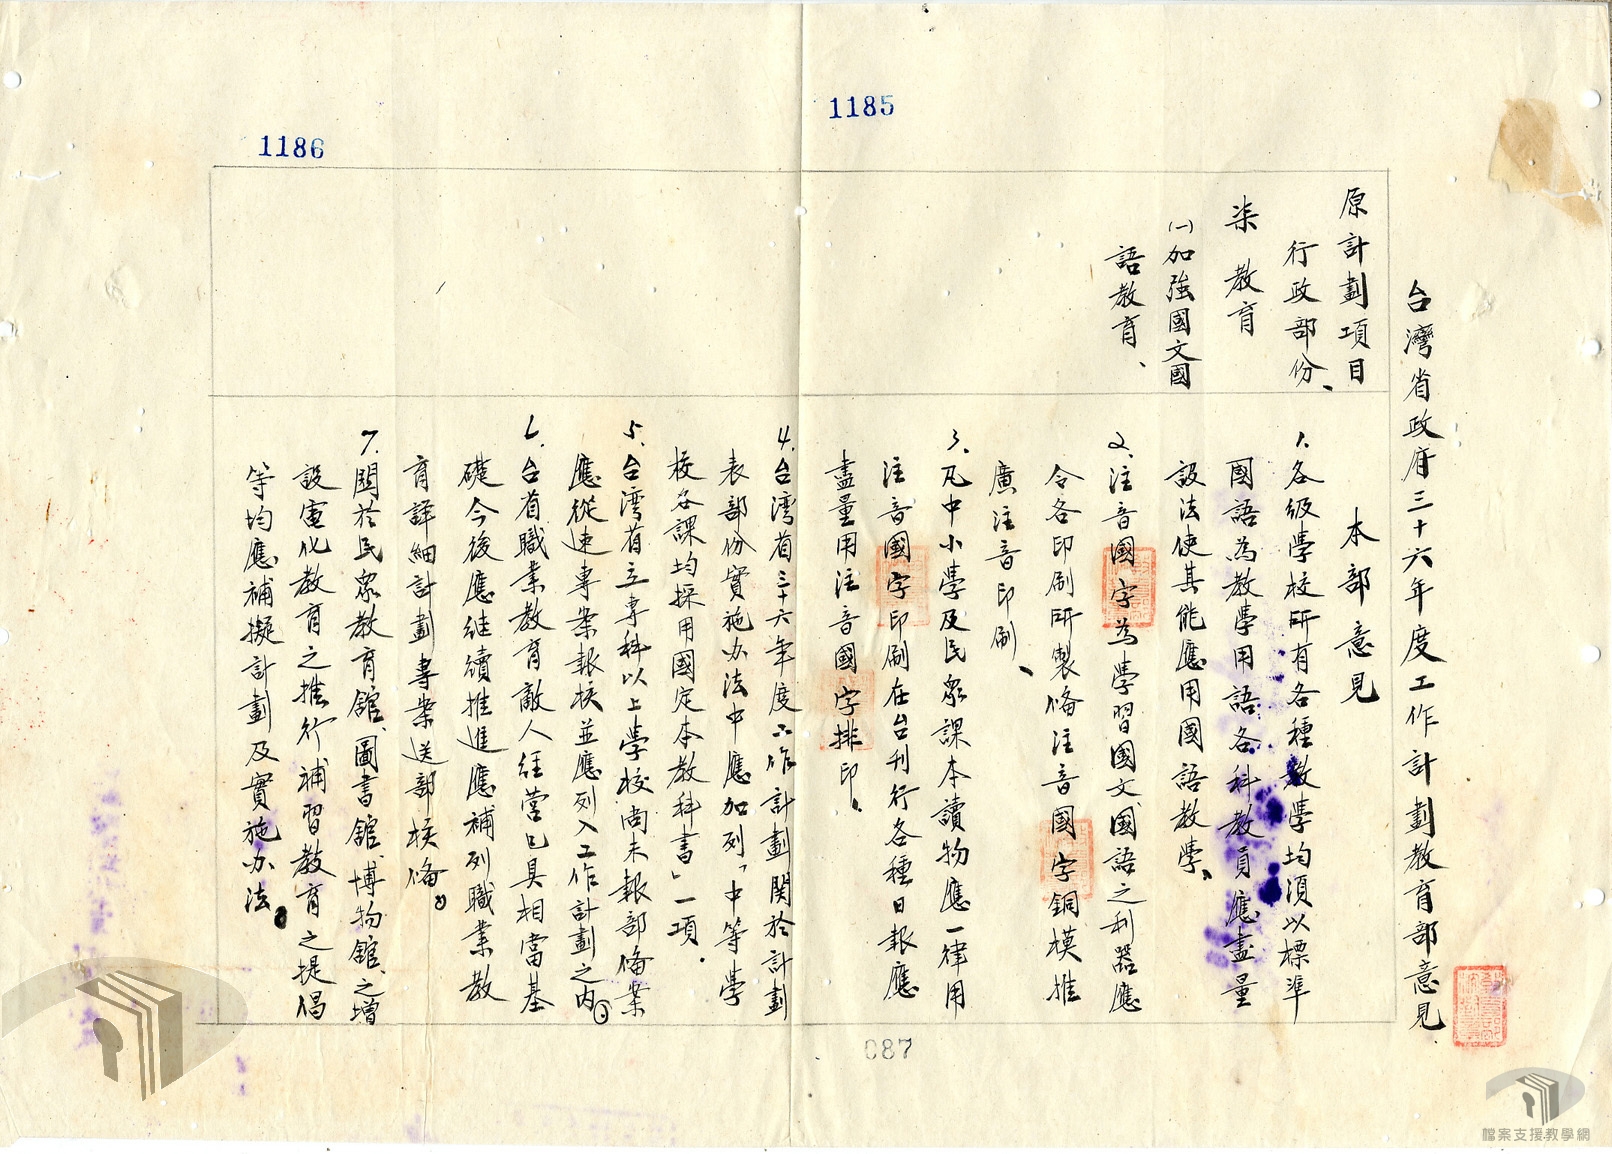 1185
1186
台灣省政府三十六年度工作計劃教育部意見
原計劃項目
行政部份、
柒 教育
(一)加強國文國
語教育、
本部意見
1.各級學校所有各種教學均須以標準
國語為教學用語各科教員應盡量
設法使其能應用國語教學、
2.注音國字為學習國文國語之利器應
令各印刷所製備注音國字銅模推
廣注音印刷、
3.凡中小學及民眾課本讀物應一律用
注音國字印刷在台刊行各種日報應
盡量用注音國字排印、
4.台灣省三十六年度工作計劃關於計劃
表部份實施办法中應加列「中等學
校各課均採用國定本教科書」一項.
5.台灣省立專科以上學校尚未報部備案
應從速專案報核並應列入工作計劃之內。
6.台省職業教育敵人経營已具相當基
礎今後應継續推進應補列職業教
育詳細計劃專案送部核備。
7.關於民眾教育舘、圖書舘、博物舘、之增
設電化教育之推行補習教育之提倡
等均應補擬計劃及實施办法。
087
檔案支援教學網